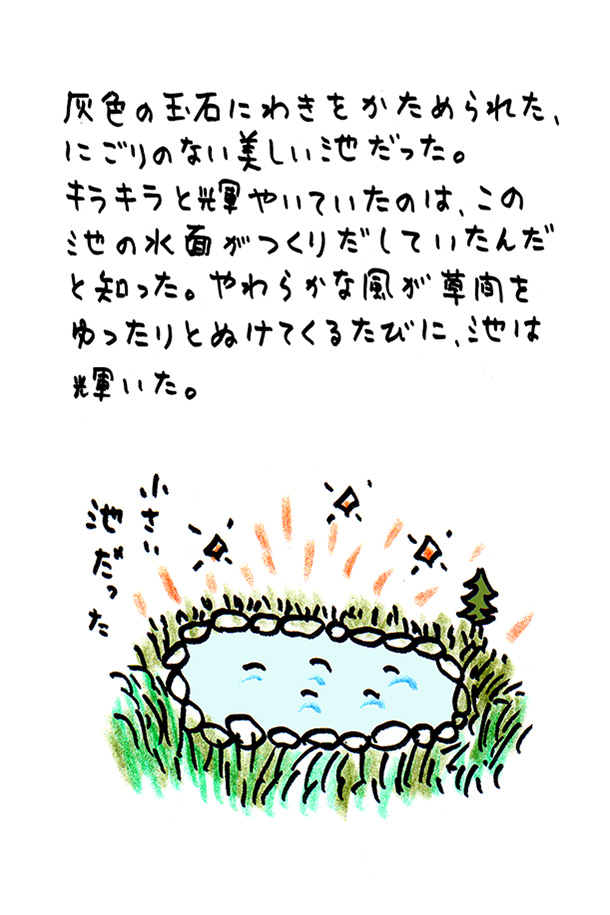 灰色の玉石にわきをかためられた、
にごりのない美しい池だった。
キラキラと輝やいていたのは、この
池の水面がつくりだしていたんだ
と知った。やわらかな風が草間を
ゆったりとぬけてくるたびに、池は
輝いた。
小さい
池だった